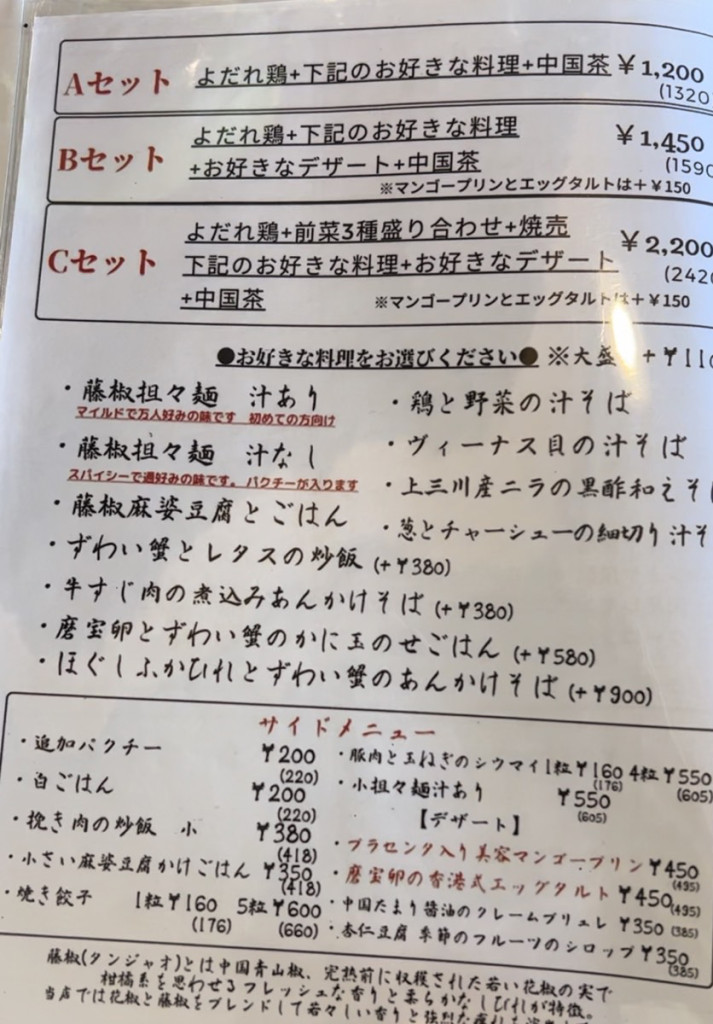 Aセット
よだれ鶏+下記のお好きな料理+中国茶 ¥1,200
(1320
Bセット
よだれ鶏+下記のお好きな料理 ¥1,450
+お好きなデザート+中国茶 (1590
※マンゴープリンとエッグタルトは+¥150
Cセット
よだれ鶏+前菜3種盛り合わせ+焼売 ¥2,200
下記のお好きな料理+お好きなデザート (2420
+中国茶 ※マンゴープリンとエッグタルトは+¥150
●お好きな料理をお選びください● ※大盛 +¥110
・藤椒担々麺 汁あり
マイルドで万人好みの味です 初めての方向け
・藤椒担々麺 汁なし
スパイシーで通好みの味です。パクチーが入ります
・藤椒麻婆豆腐とごはん
・ずわい蟹とレタスの炒飯 (+¥380)
・牛すじ肉の煮込みあんかけそば (+¥380)
・磨宝卵とずわい蟹のかに玉のせごはん (+¥580)
・ほぐしふかひれとずわい蟹のあんかけそば (+¥900)
・鶏と野菜の汁そば
・ヴィーナス貝の汁そば
・上三川産ニラの黒酢和えそ
・葱とチャーシューの細切り汁そ
サイドメニュー
・追加パクチー ¥200
(220)
・白ごはん ¥200
(220)
・挽き肉の炒飯 小 ¥380
(418)
・小さい麻婆豆腐かけごはん ¥350
(418)
・焼き餃子 1粒¥160 5粒¥600
(176) (660)
・豚肉と玉ねぎのシウマイ1粒¥160 4粒¥550
(176) (605)
・小担々麺汁あり ¥550
(605)
【デザート】
・プラセンタ入り美容マンゴープリン ¥450
(495)
・磨宝卵の香港式エッグタルト ¥450(495)
・中国たまり醤油のクレームブリュレ ¥350(385)
・杏仁豆腐 季節のフルーツのシロップ ¥350
(385)
藤椒(タンジャオ)とは中国青山椒、完熟前に収穫された若い花椒の実で
柑橘系を思わせるフレッシュな香りと柔らかなしびれが特徴。
当店では花椒と藤椒をブレンドして若々しい香りと強烈な